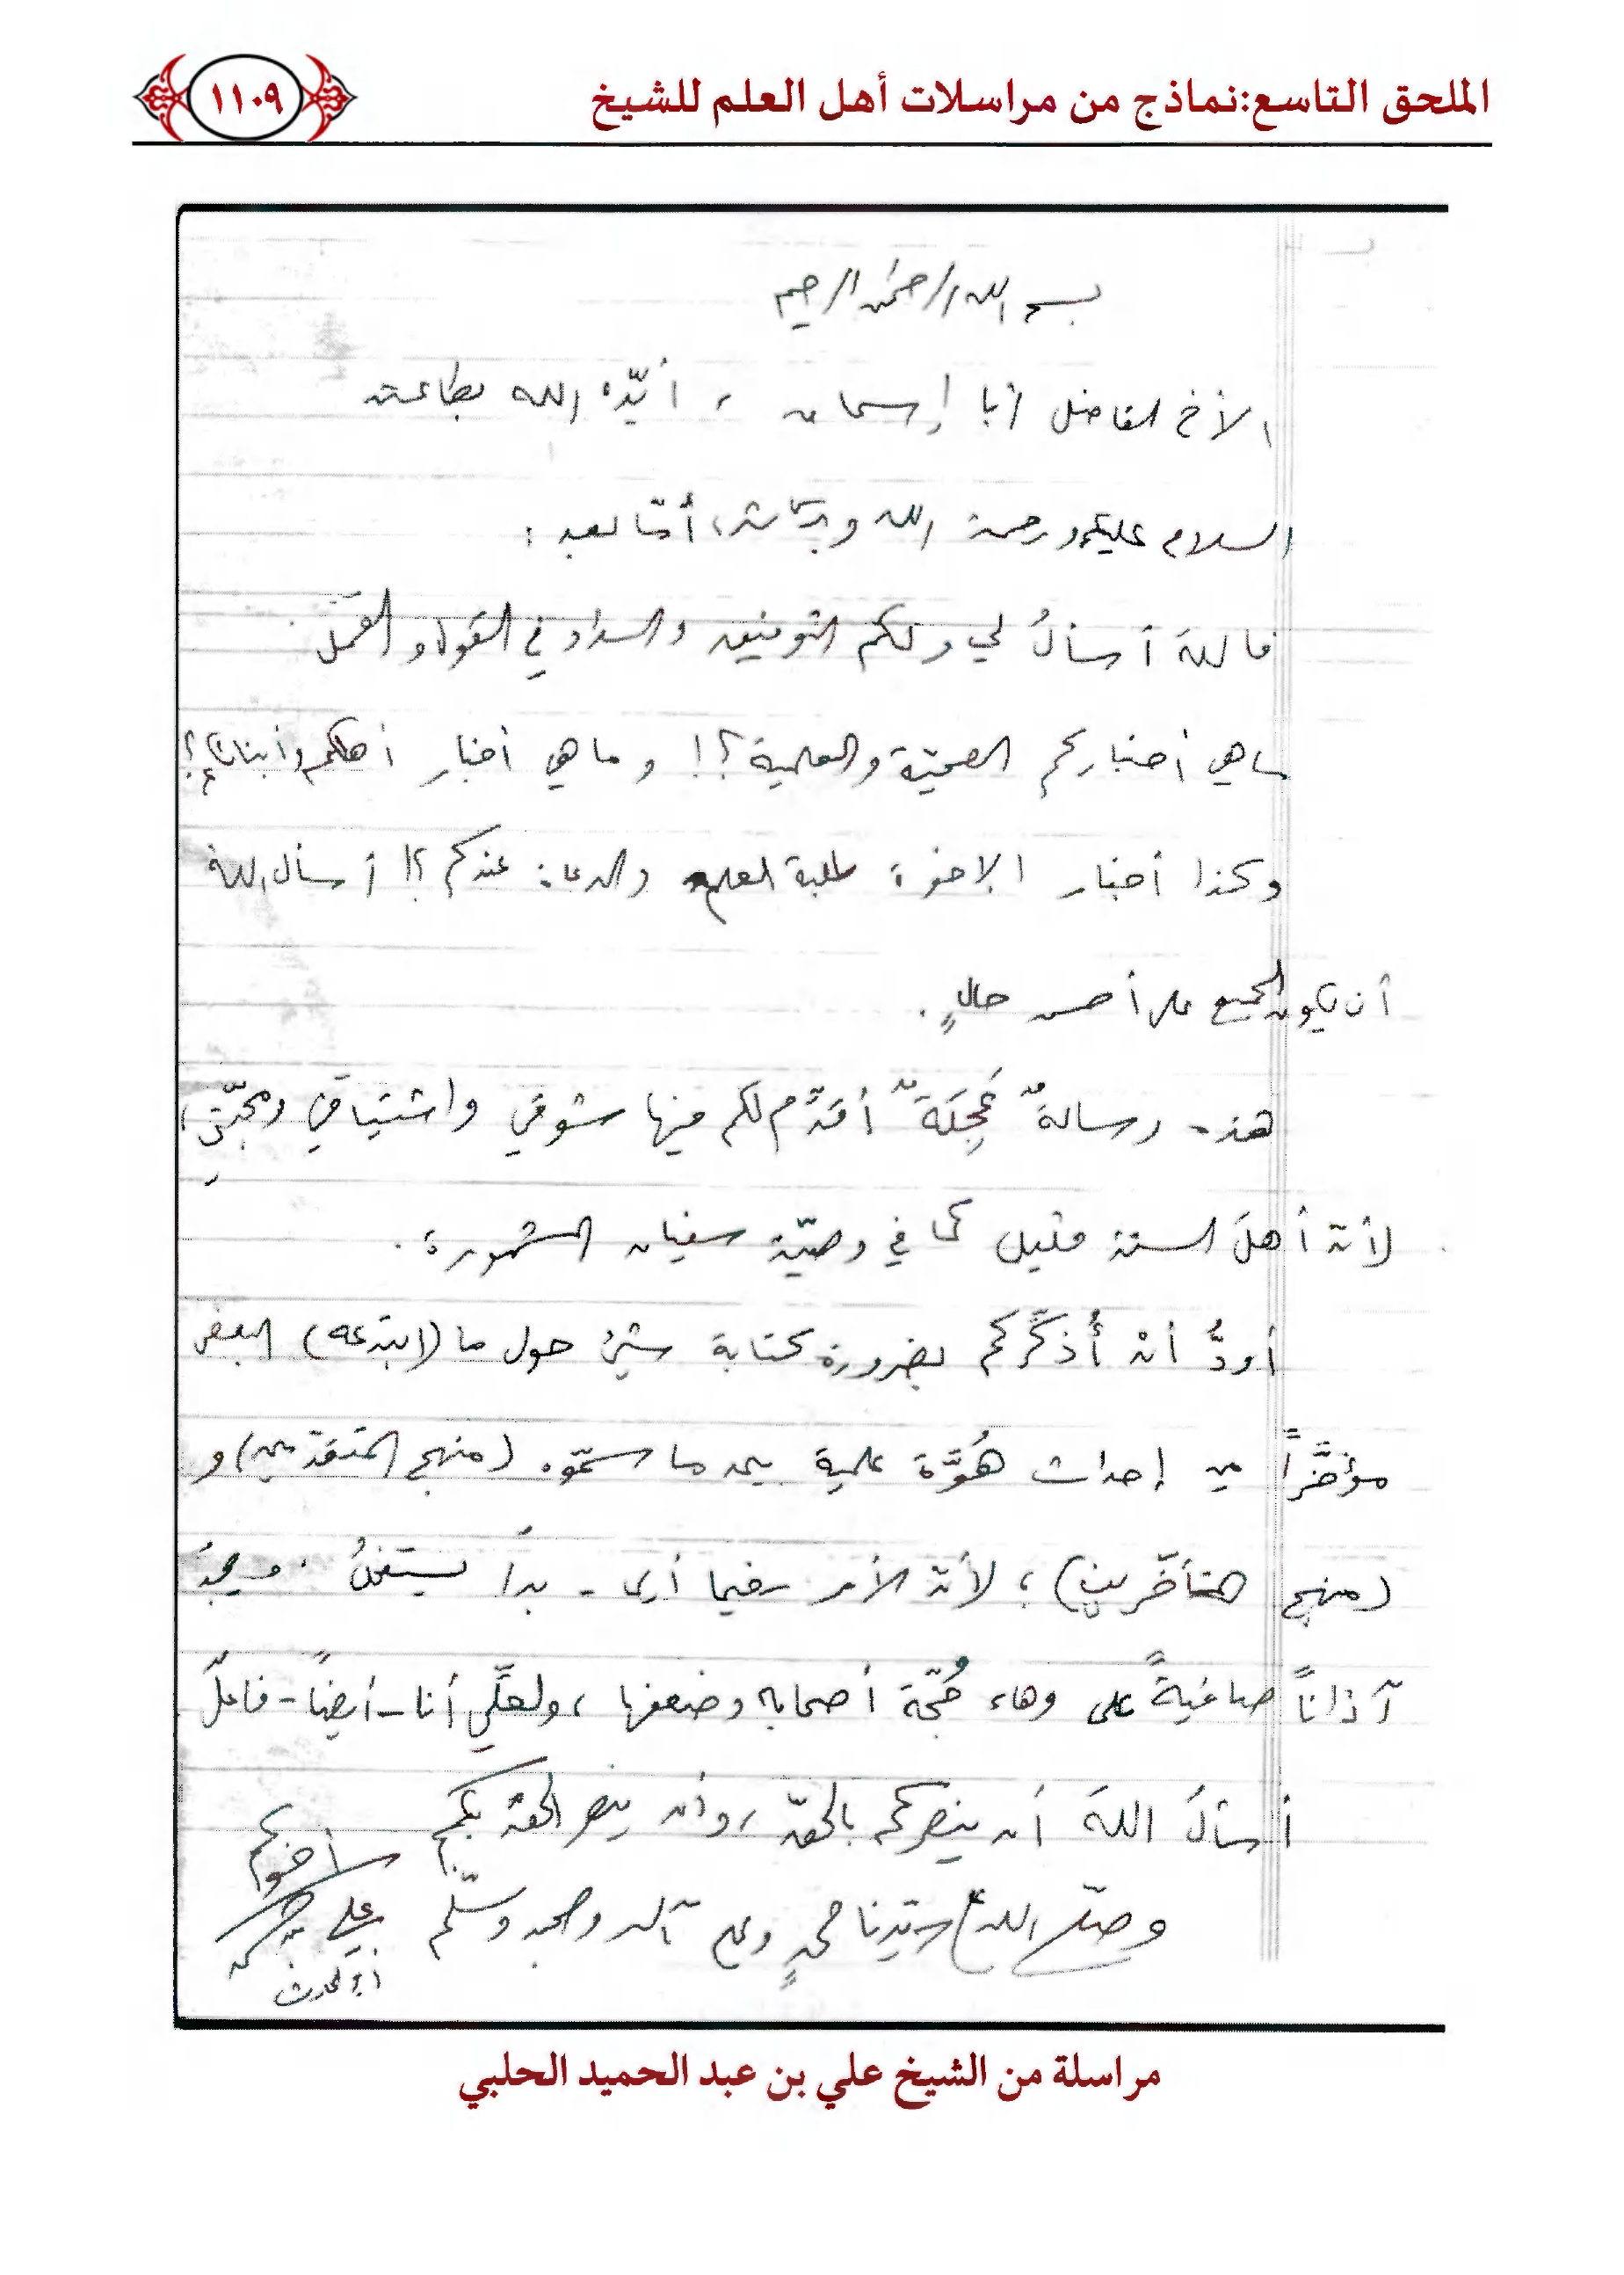 الملحق التاسع:نماذج من مراسلات أهل العلم للشيخ
١١٠٩
بسم الله الرحمن الرحيم
الأخ الفاضل أبا إسحاق ، أيّده الله بطاعته
السلام عليكم ورحمة الله وبركاته، أمّا بعد :
فاللهَ أسألُ لي ولكم التوفيق والسداد في القول والعَمَل .
ما هي أخباركم الصحيّة والعلمية؟! وما هي أخبار أهلكم وأبنائكم؟!
وكذا أخبار الإخوة طلبة العلم والدعاة عندكم؟! أسأل الله
أن يكون الجميع على أحسن حالٍ .
هذه رسالةٌ عَجِلَةٌ أقدّم لكم فيها شوقي واشتياقي ومحبّتي،
لأنّ أهلَ السنة قليل كما في وصيّة سفيان المشهورة .
أودُّ أنْ أُذَكِّركم بضرورة كتابة شيءٍ حول ما (ابتدعه) البعض
مؤخَّراً من إحداث هُوَّة علمية بين ما سمّوه (منهج المتقدّمين) و
(منهج المتأخّرين) ؛ لأنّ الأمر -فيما أرى- بدأ يستفحلُ . ويجدُ
آذاناً صاغيةً على وهاء حُجّة أصحابه وضعفها ، ولعلّي أنا-أيضاً-فاعلٌ
أسألُ اللهَ أن ينصركم بالحقّ ، وأن ينصر الحقّ بكم
أخوكم
وصلّى الله على سيّدنا محمدٍ وعلى آله وصحبه وسلّم
علي بن حسن
أبو الحارث
مراسلة من الشيخ علي بن عبد الحميد الحلبي